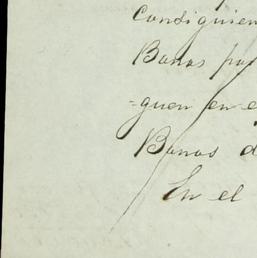 Consiguien
Bonos por
=guen en e
Bonos d
En el